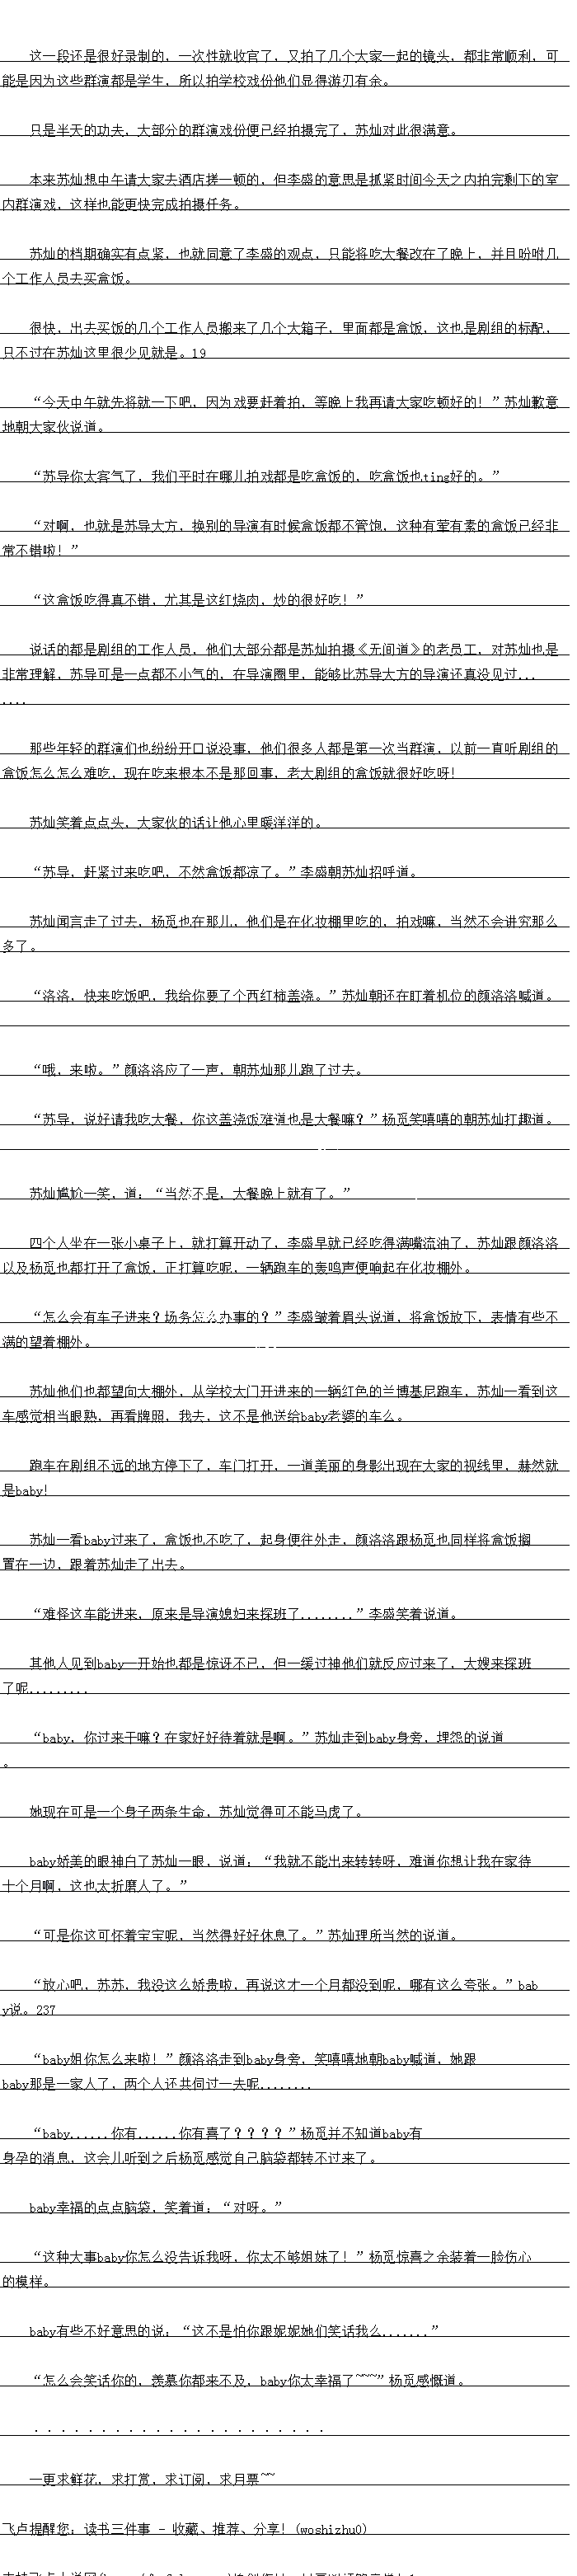 这一段还是很好录制的，一次性就收官了，又拍了几个大家一起的镜头，都非常顺利，可
能是因为这些群演都是学生，所以拍学校戏份他们显得游刃有余。
只是半天的功夫，大部分的群演戏份便已经拍摄完了，苏灿对此很满意。
本来苏灿想中午请大家去酒店搓一顿的，但李盛的意思是抓紧时间今天之内拍完剩下的室
内群演戏，这样也能更快完成拍摄任务。
苏灿的档期确实有点紧，也就同意了李盛的观点，只能将吃大餐改在了晚上，并且吩咐几
个工作人员去买盒饭。
很快，出去买饭的几个工作人员搬来了几个大箱子，里面都是盒饭，这也是剧组的标配，
只不过在苏灿这里很少见就是。19
“今天中午就先将就一下吧，因为戏要赶着拍，等晚上我再请大家吃顿好的！”苏灿歉意
地朝大家伙说道。
“苏导你太客气了，我们平时在哪儿拍戏都是吃盒饭的，吃盒饭也ting好的。”
“对啊，也就是苏导大方，换别的导演有时候盒饭都不管饱，这种有荤有素的盒饭已经非
常不错啦！”
“这盒饭吃得真不错，尤其是这红烧肉，炒的很好吃！”
说话的都是剧组的工作人员，他们大部分都是苏灿拍摄《无间道》的老员工，对苏灿也是
非常理解，苏导可是一点都不小气的，在导演圈里，能够比苏导大方的导演还真没见过...
....
那些年轻的群演们也纷纷开口说没事，他们很多人都是第一次当群演，以前一直听剧组的
盒饭怎么怎么难吃，现在吃来根本不是那回事，老大剧组的盒饭就很好吃呀！
苏灿笑着点点头，大家伙的话让他心里暖洋洋的。
“苏导，赶紧过来吃吧，不然盒饭都凉了。”李盛朝苏灿招呼道。
苏灿闻言走了过去，杨觅也在那儿，他们是在化妆棚里吃的，拍戏嘛，当然不会讲究那么
多了。
“洛洛，快来吃饭吧，我给你要了个西红柿盖浇。”苏灿朝还在盯着机位的颜洛洛喊道。
“哦，来啦。”颜洛洛应了一声，朝苏灿那儿跑了过去。
“苏导，说好请我吃大餐，你这盖浇饭难道也是大餐嘛？”杨觅笑嘻嘻的朝苏灿打趣道。
苏灿尴尬一笑，道：“当然不是，大餐晚上就有了。”
四个人坐在一张小桌子上，就打算开动了，李盛早就已经吃得满嘴流油了，苏灿跟颜洛洛
以及杨觅也都打开了盒饭，正打算吃呢，一辆跑车的轰鸣声便响起在化妆棚外。
“怎么会有车子进来？场务怎么办事的？”李盛皱着眉头说道，将盒饭放下，表情有些不
满的望着棚外。
苏灿他们也都望向大棚外，从学校大门开进来的一辆红色的兰博基尼跑车，苏灿一看到这
车感觉相当眼熟，再看牌照，我去，这不是他送给baby老婆的车么。
跑车在剧组不远的地方停下了，车门打开，一道美丽的身影出现在大家的视线里，赫然就
是baby！
苏灿一看baby过来了，盒饭也不吃了，起身便往外走，颜洛洛跟杨觅也同样将盒饭搁
置在一边，跟着苏灿走了出去。
“难怪这车能进来，原来是导演媳妇来探班了........”李盛笑着说道。
其他人见到baby一开始也都是惊讶不已，但一缓过神他们就反应过来了，大嫂来探班
了呢.........
“baby，你过来干嘛？在家好好待着就是啊。”苏灿走到baby身旁，埋怨的说道
。
她现在可是一个身子两条生命，苏灿觉得可不能马虎了。
baby娇美的眼神白了苏灿一眼，说道：“我就不能出来转转呀，难道你想让我在家待
十个月啊，这也太折磨人了。”
“可是你这可怀着宝宝呢，当然得好好休息了。”苏灿理所当然的说道。
“放心吧，苏苏，我没这么娇贵啦，再说这才一个月都没到呢，哪有这么夸张。”bab
y说。237
“baby姐你怎么来啦！”颜洛洛走到baby身旁，笑嘻嘻地朝baby喊道，她跟
baby那是一家人了，两个人还共伺过一夫呢........
“baby......你有......你有喜了？？？？”杨觅并不知道baby有
身孕的消息，这会儿听到之后杨觅感觉自己脑袋都转不过来了。
baby幸福的点点脑袋，笑着道：“对呀。”
“这种大事baby你怎么没告诉我呀，你太不够姐妹了！”杨觅惊喜之余装着一脸伤心
的模样。
baby有些不好意思的说：“这不是怕你跟妮妮她们笑话我么.......”
“怎么会笑话你的，羡慕你都来不及，baby你太幸福了~~~~”杨觅感慨道。
．．．．．．．．．．．．．．．．．．．．．．
一更求鲜花，求打赏，求订阅，求月票~~
飞卢提醒您：读书三件事 - 收藏、推荐、分享！(woshizhu0)